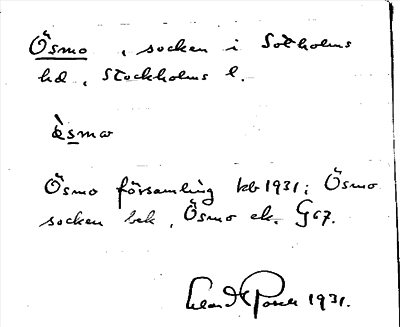 Ösmo, socken i Sotholms
hd, Stockholms l.
ò̀smω
Ösmo församling kb 1931; Ösmo
socken bek, Ösmo ek. G67.
1931.